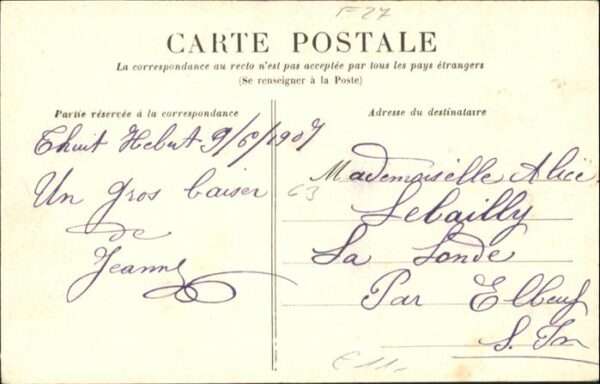 F 27
CARTE POSTALE
La correspondance au recto n'est pas acceptée par tous les pays étrangers
(Se renseigner à la Poste)
Partie réservée à la correspondance
Adresse du destinataire
Thuit Hebert 9/6/1907
Un gros baiser
de
Jeanne
63
Mademoiselle Alice
Lebailly
La Londe
Par Elbeuf
S. Inf